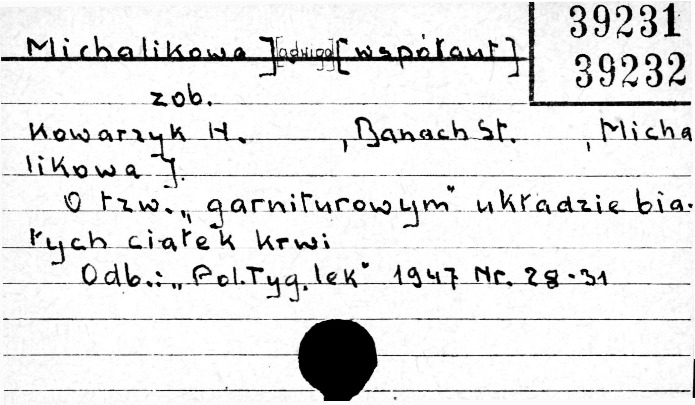 39231
39232
Michalikowa J[adwiga] [współaut]
zob.
Kowarzyk H. , Banach St. , Micha
likowa J.
O tzw. „garniturowym" układzie bia-
łych ciałek krwi
Odb.: „Pol.Tyg.lek" 1947 Nr. 28-31